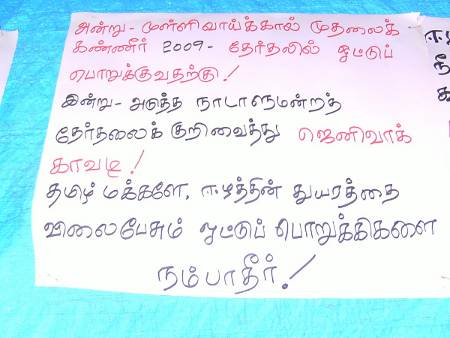 அன்று - முள்ளிவாய்க்கால் முதலைக்
கண்ணீர் 2009 - தேர்தலில் ஓட்டுப்
பொறுக்குவதற்கு!
இன்று - அடுத்த நாடாளுமன்றத்
தேர்தலைக் குறிவைத்து ஜெனிவாக்
காவடி!
தமிழ் மக்களே, ஈழத்தின் துயரத்தை
விலைபேசும் ஓட்டுப் பொறுக்கிகளை
நம்பாதீர்!